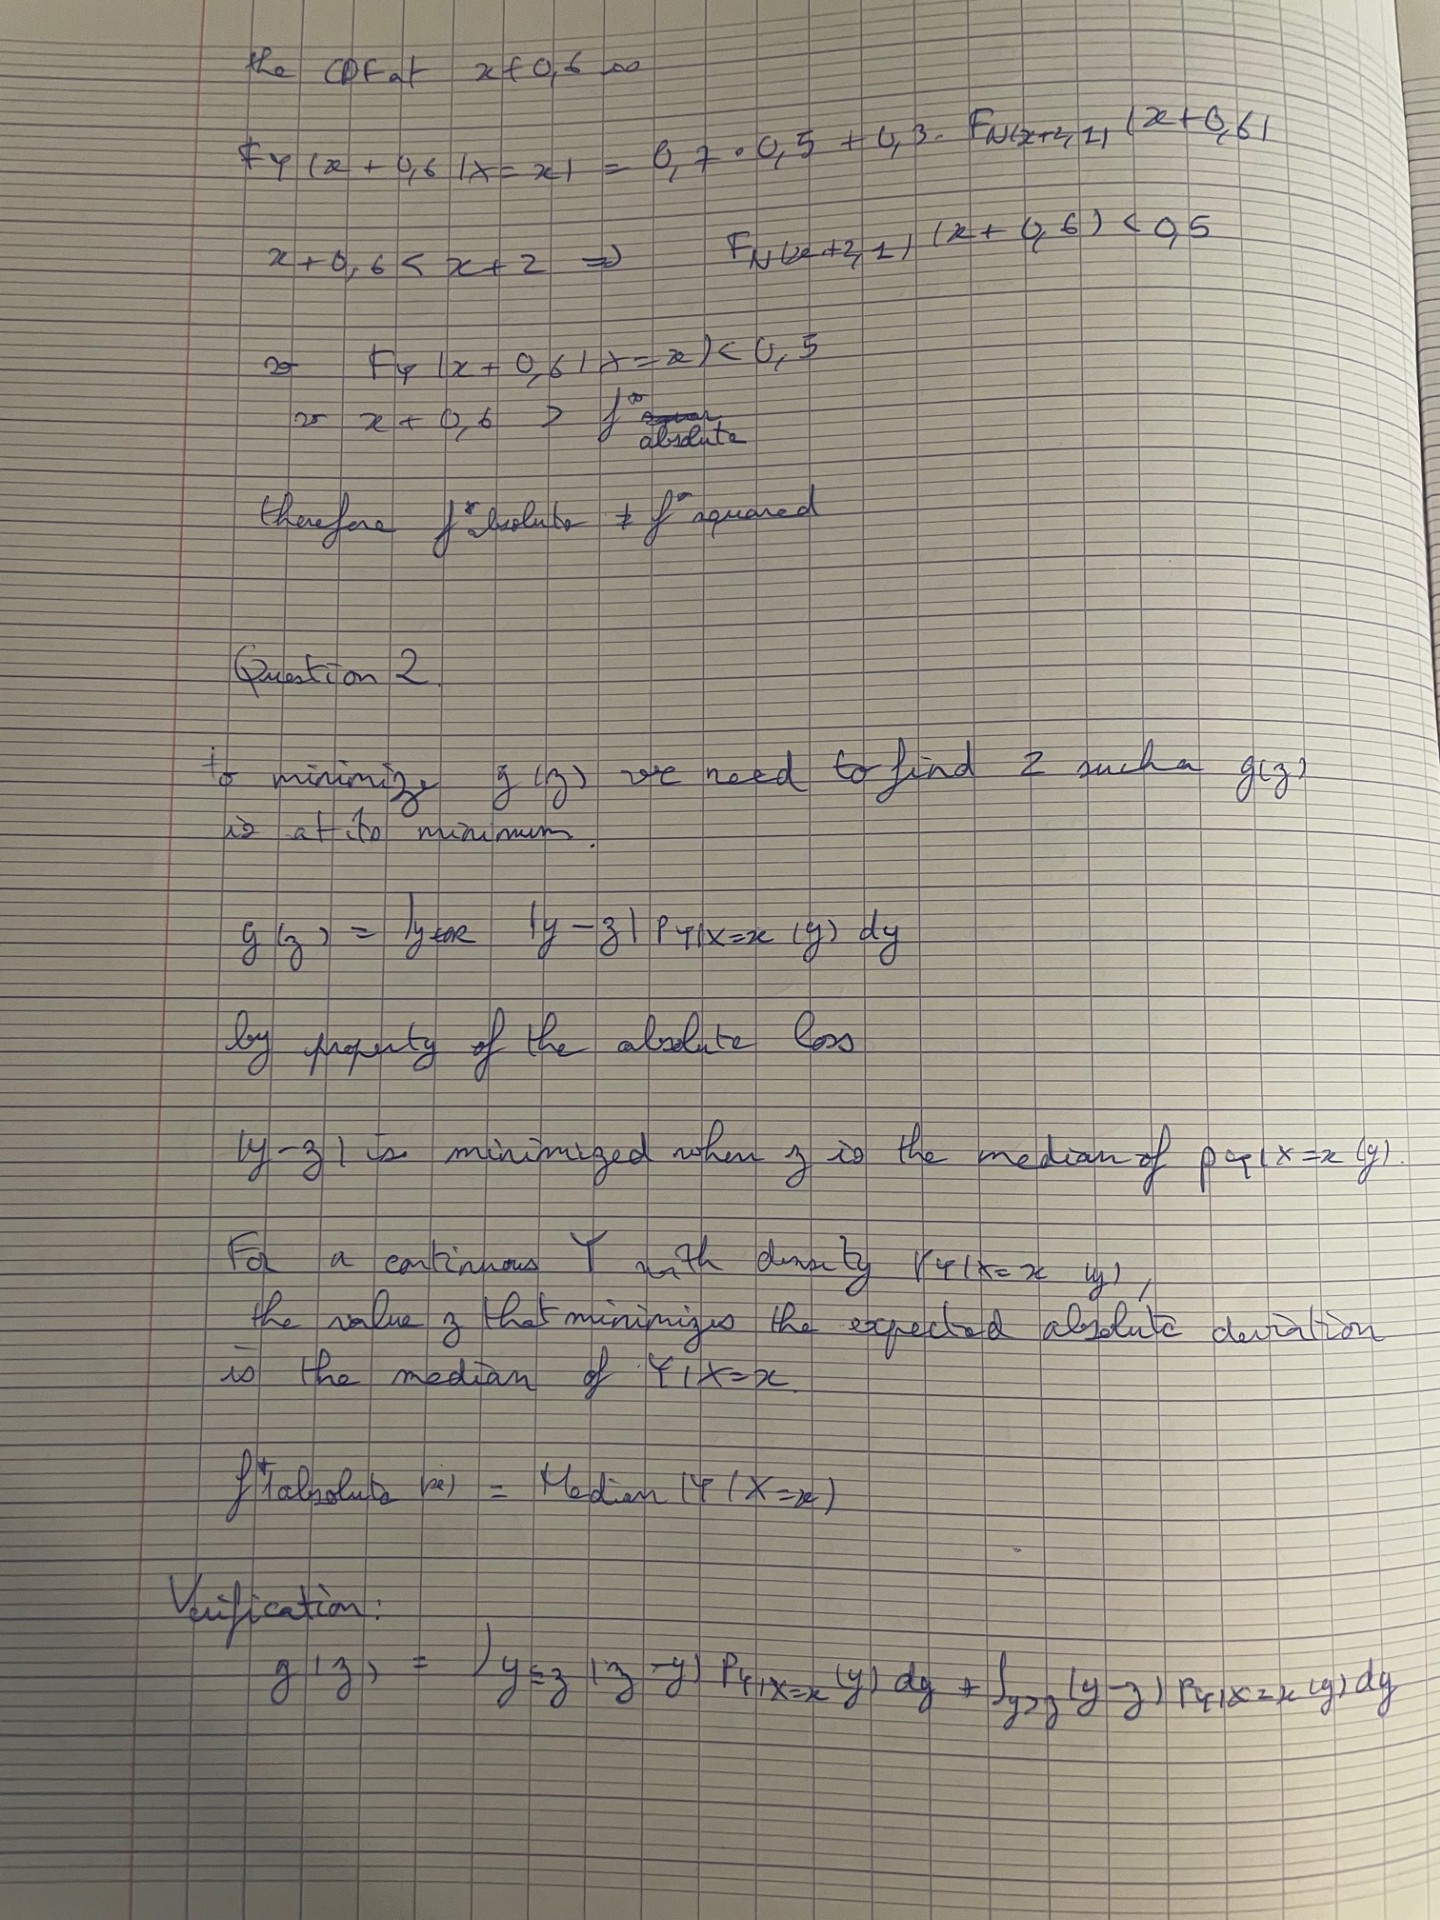 the CDF at x+0,6 is
F_Y(x+0,6|X=x) = 0,7 • 0,5 + 0,3 • F_N(x+2,1) (x+0,6)
x+0,6 < x+2 ⇒ F_N(x+2,1) (x+0,6) < 0,5
so F_Y(x+0,6|X=x) < 0,5
so x+0,6 > f*
absolute
therefore f*absolute ≠ f*squared
Question 2.
to minimize g(z) we need to find z such a g(z)
is at its minimum.
g(z) = ∫y∈R |y-z| P_Y|X=x (y) dy
by property of the absolute loss
|y-z| is minimized when z is the median of p_Y|X=x (y).
For a continuous Y with density P_Y|X=x (y),
the value z that minimizes the expected absolute deviation
is the median of Y|X=x.
f*absolute (x) = Median (Y|X=x)
Verification:
g(z) = ∫y≤z (z-y) P_Y|X=x (y) dy + ∫y>z (y-z) P_Y|X=x (y) dy